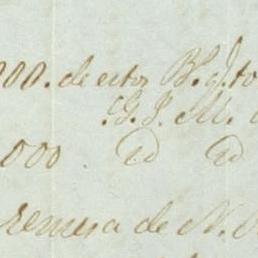 000. de estos B.
G. J. M.
000 id id
remesa de N.